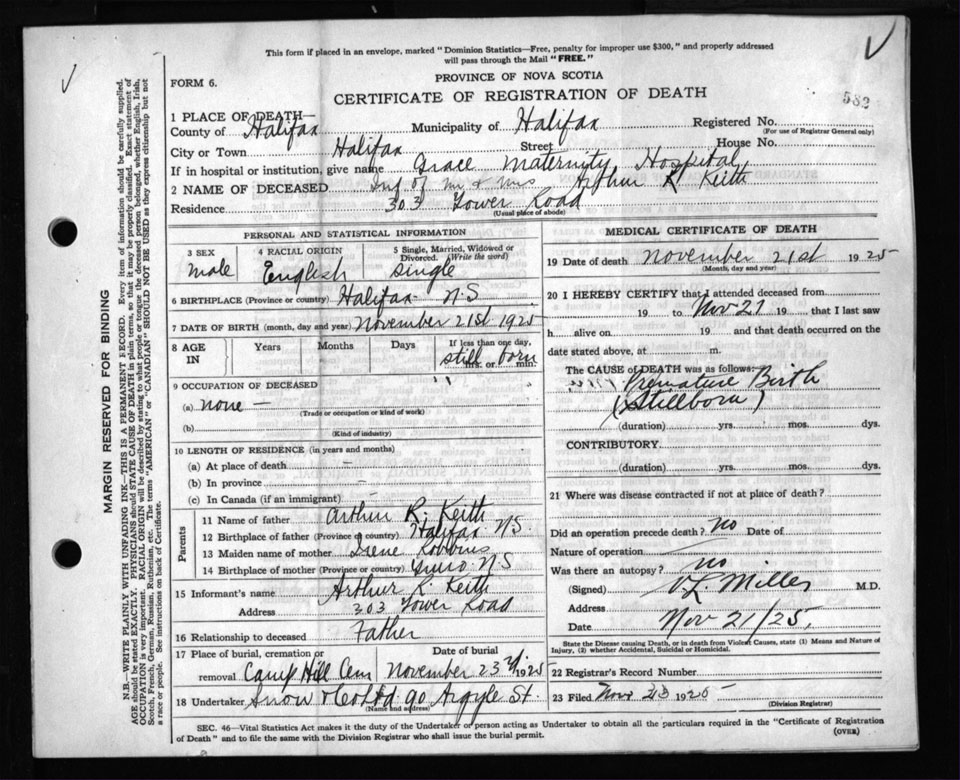 This form if placed in an envelope, marked "Dominion Statistics—Free, penalty for improper use $300," and properly addressed
will pass through the Mail "FREE."
FORM 6.
PROVINCE OF NOVA SCOTIA
CERTIFICATE OF REGISTRATION OF DEATH
582
1 PLACE OF DEATH—
County of Halifax Municipality of Halifax Registered No.
(For use of Registrar General only)
City or Town Halifax Street House No.
If in hospital or institution, give name Grace Maternity Hospital
2 NAME OF DECEASED Inf of Mr & Mrs Arthur R Keith
Residence 303 Tower Road
(Usual place of abode)
PERSONAL AND STATISTICAL INFORMATION
3 SEX 4 RACIAL ORIGIN 5 Single, Married, Widowed or
Divorced. (Write the word)
male English single
6 BIRTHPLACE (Province or country) Halifax NS
7 DATE OF BIRTH (month, day and year) November 21st 1925
8 AGE IN Years Months Days If less than one day,
still born
hrs. or min.
9 OCCUPATION OF DECEASED
(a) none —
(Trade or occupation or kind of work)
(b)
(Kind of industry)
10 LENGTH OF RESIDENCE (in years and months)
(a) At place of death —
(b) In province —
(c) In Canada (if an immigrant) —
Parents
11 Name of father Arthur R. Keith
12 Birthplace of father (Province or country) Halifax NS.
13 Maiden name of mother Irene Robbins
14 Birthplace of mother (Province or country) Truro NS
15 Informant's name Arthur R. Keith
Address 303 Tower Road
16 Relationship to deceased Father
17 Place of burial, cremation or Date of burial
removal Camp Hill Cem November 23rd 1925
18 Undertaker Snow & Co Ltd 90 Argyle St.
(Name and address)
MEDICAL CERTIFICATE OF DEATH
19 Date of death November 21st 1925
(Month, day and year)
20 I HEREBY CERTIFY that I attended deceased from
19 to Nov 21 19 that I last saw
h alive on 19 and that death occurred on the
date stated above, at m.
The CAUSE of DEATH was as follows:
Premature Birth
(Stillborn)
(duration) yrs. mos. dys.
CONTRIBUTORY
(duration) yrs. mos. dys.
21 Where was disease contracted if not at place of death?
Did an operation precede death? no Date of
Nature of operation
Was there an autopsy? no
(Signed) V.L. Miller M.D.
Address
Date Nov 21/25.
State the Disease causing Death, or in death from Violent Causes, state (1) Means and Nature of
Injury, (2) whether Accidental, Suicidal or Homicidal.
22 Registrar's Record Number
23 Filed Nov 23 1925
(Division Registrar)
SEC. 46—Vital Statistics Act makes it the duty of the Undertaker or person acting as Undertaker to obtain all the particulars required in the "Certificate of Registration
of Death" and to file the same with the Division Registrar who shall issue the burial permit.
(OVER)
MARGIN RESERVED FOR BINDING
N.B.—WRITE PLAINLY WITH UNFADING INK—THIS IS A PERMANENT RECORD. Every item of information should be carefully supplied.
AGE should be stated EXACTLY. PHYSICIANS should STATE CAUSE OF DEATH in plain terms, so that it may be properly classified. Exact statement of
OCCUPATION is very important. RACIAL ORIGIN will be described by stating to what people or tongue the deceased person belonged, whether English, Irish,
Scotch, French, German, Russian, Ruthenian, etc. The terms "AMERICAN" or "CANADIAN" SHOULD NOT BE USED as they express citizenship but not
a race or people. See instructions on back of Certificate.